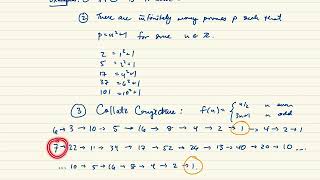 ② There are infinitely many primes p such that
p = n²+1 for some n ∈ ℤ.
2 = 1²+1
5 = 2²+1
17 = 4²+1
37 = 6²+1
101 = 10²+1
③ Collatz Conjecture: f(n) = { n/2 n even
3n+1 n odd
6 → 3 → 10 → 5 → 16 → 8 → 4 → 2 → 1 → 4 → 2 → 1
7 → 22 → 11 → 34 → 17 → 52 → 26 → 13 → 40 → 20 → 10 ...
... 10 → 5 → 16 → 8 → 4 → 2 → 1